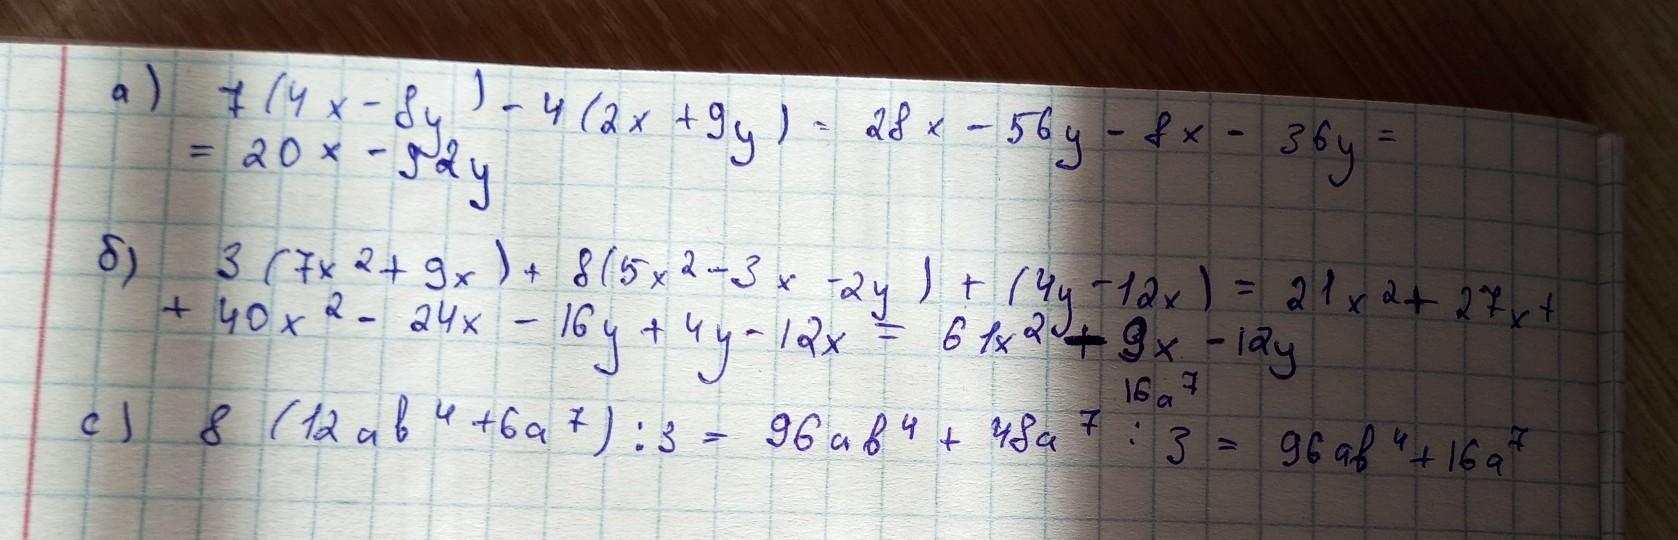 а) 7(4x-8y)-4(2x+9y)= 28x-56y-8x-36y=
= 20x-92y
б) 3(7x²+9x)+8(5x²-3x-2y)+(4y-12x)=21x²+27x+
+40x²-24x-16y+4y-12x=61x²+9x-12y
16a⁷
c) 8(12ab⁴+6a⁷):3=96ab⁴+48a⁷:3=96ab⁴+16a⁷